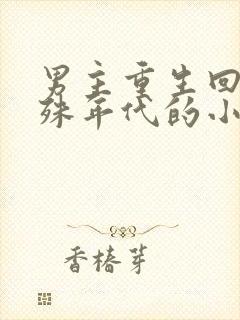 男主重生回
殊年代的小
香椿芽